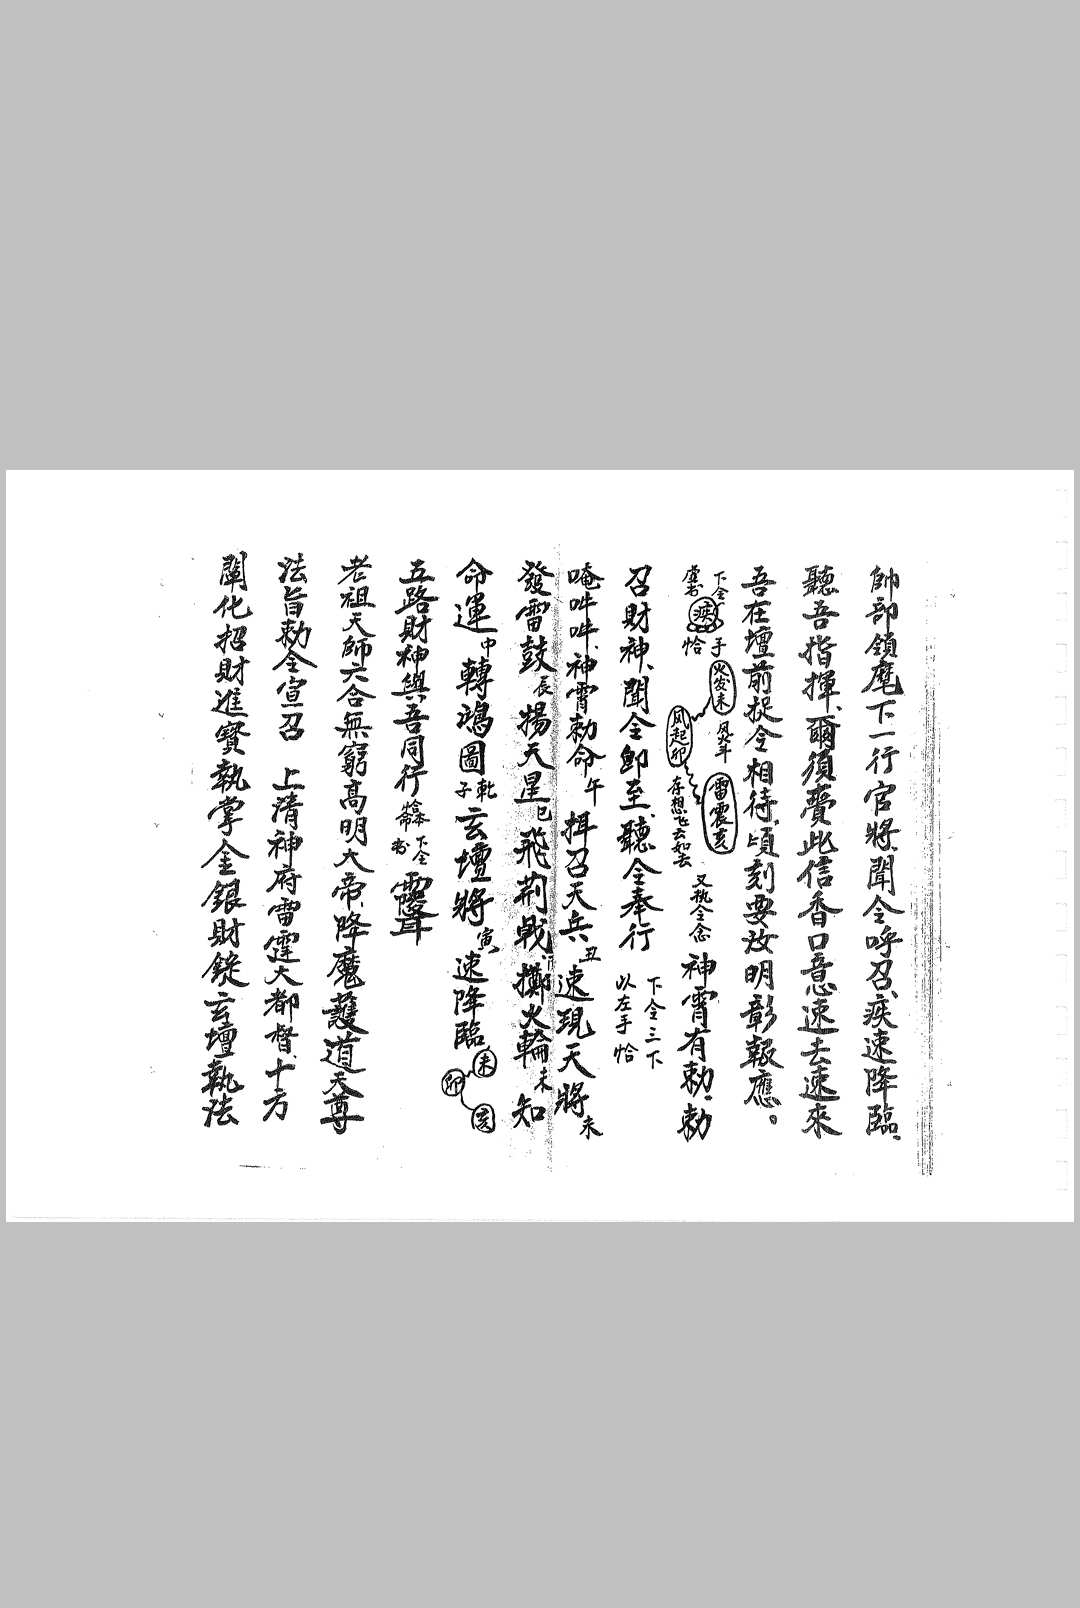 帥部領麾下一行官將、聞令呼召、疾速降臨、
聽吾指揮、爾須賷此信香口意速去速來
吾在壇前捉令相待、頃刻要汝明彰報應。
下令
虛書
疾
手
恰
火发未
风起卯
风火斗
雷震亥
存想飞云如去
又執令念
神霄有勅、勅
召財神、聞令卽至、聽令奉行
下令三下
以左手恰
唵吽吽、神霄勅命午揖召天兵丑速現天將未
發雷鼓辰揚天星巳飛荊戟擲火輪未知
命運中轉鴻圖乾子玄壇將寅速降臨
未
卯
五路財神與吾同行
下令
老祖天師六合無窮高明大帝、降魔護道天尊
法旨勅令宣召 上清神府雷霆大都督、十方
闡化招財進寶執掌金銀財錠玄壇執法